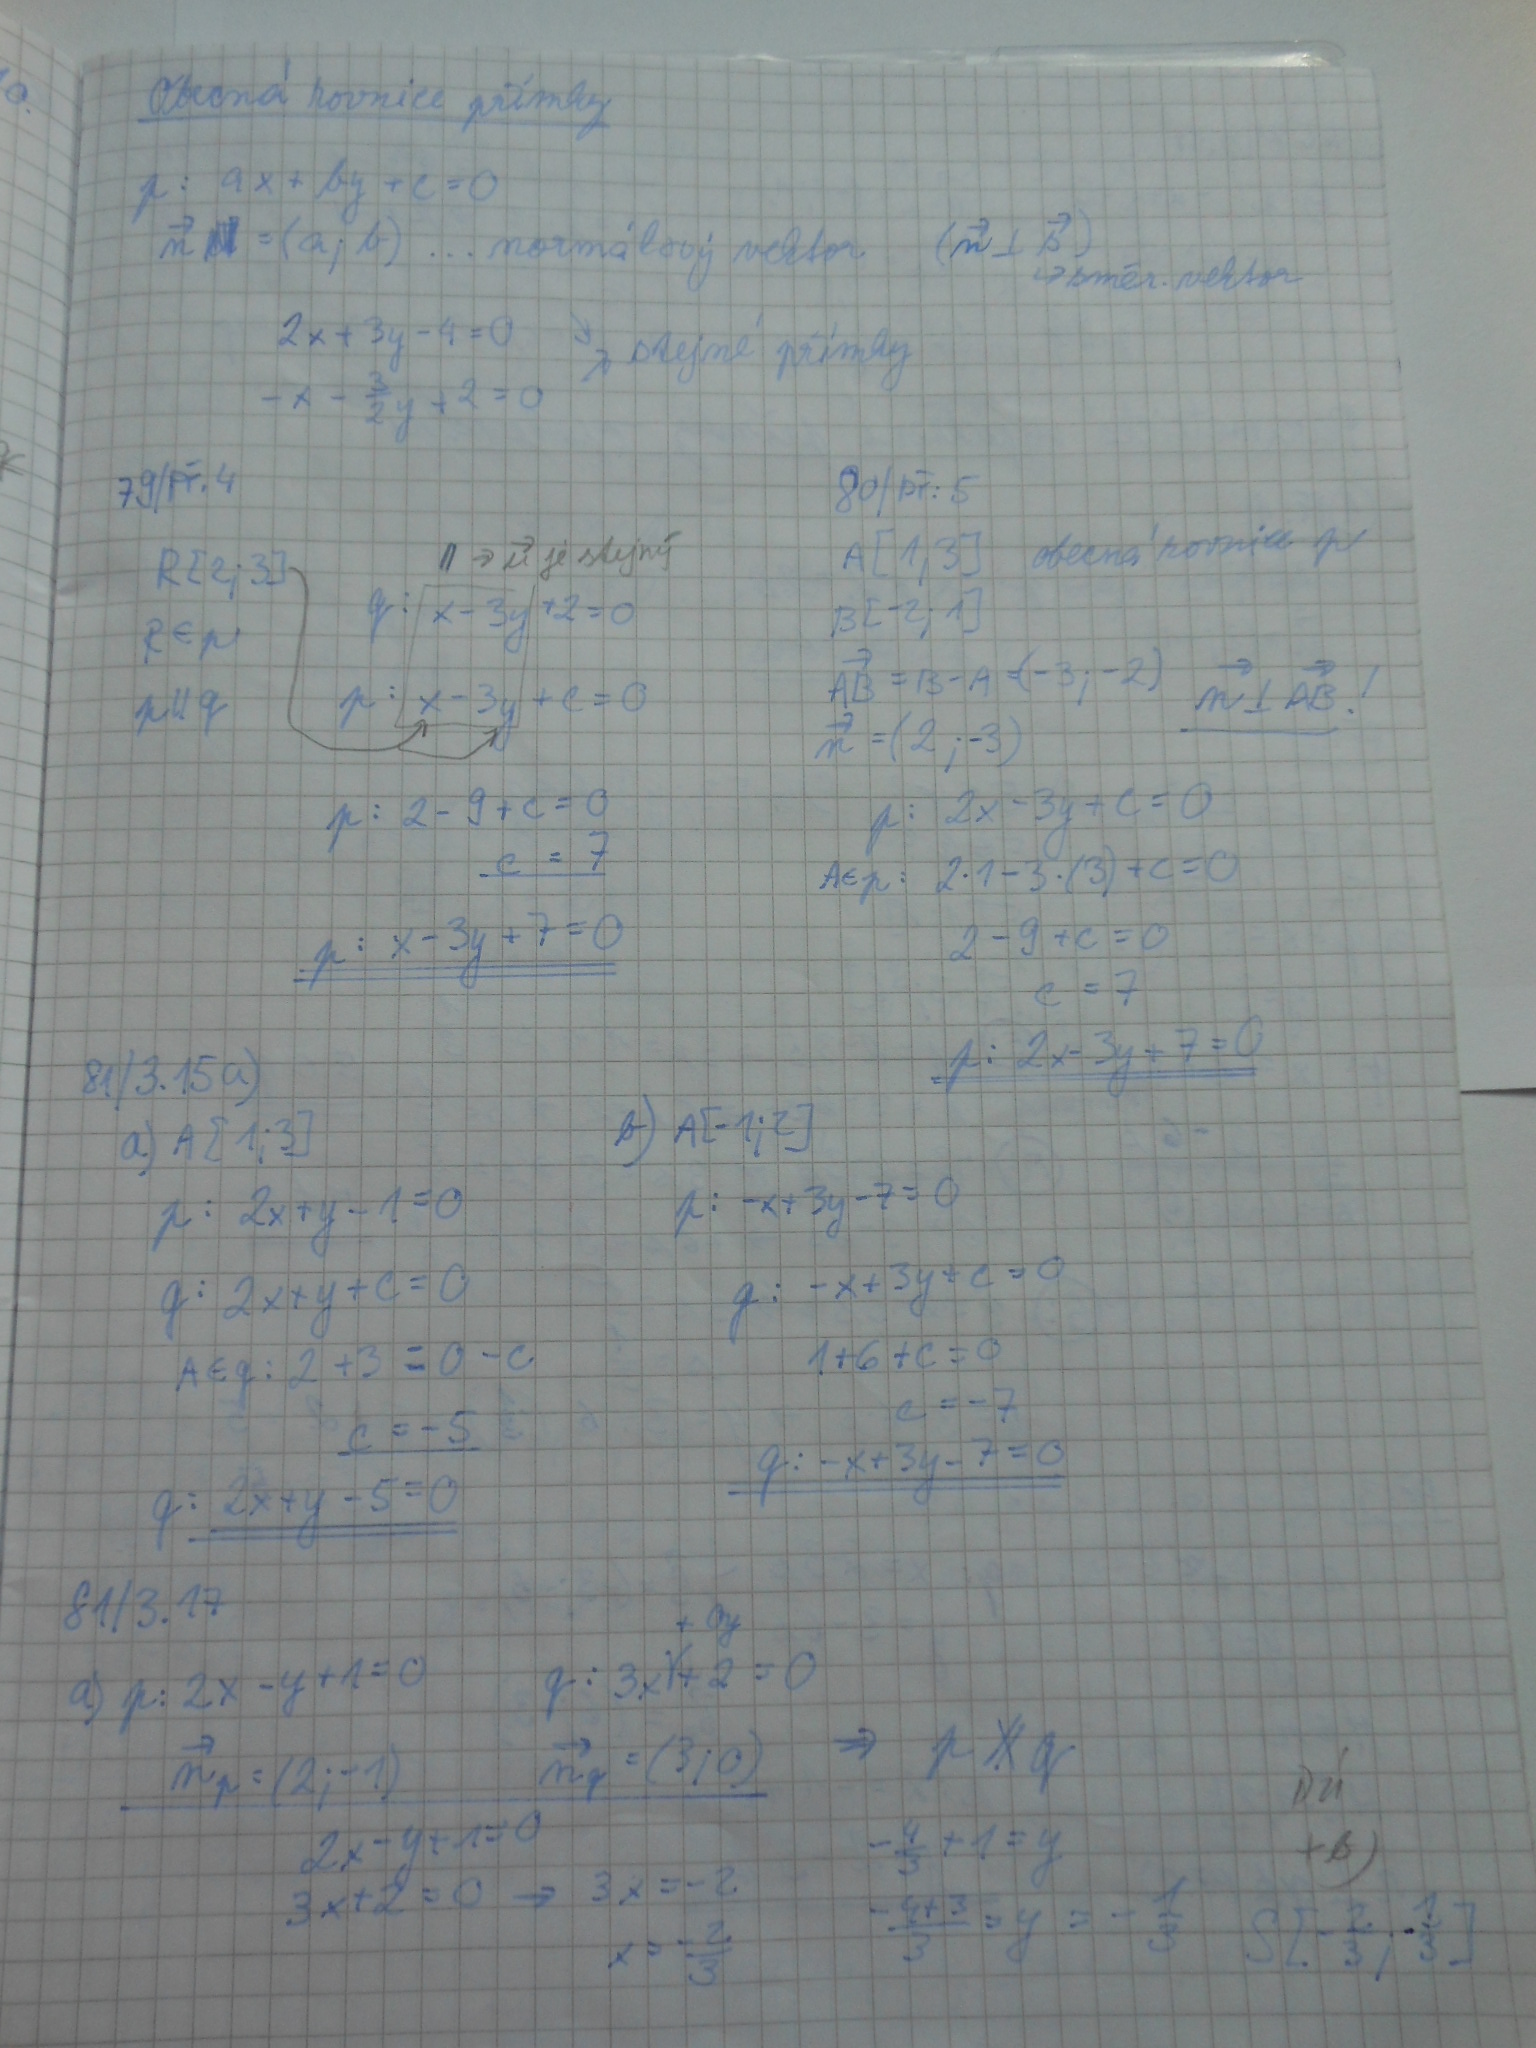 Obecná rovnice přímky
p: ax + by + c = 0
n⃗ = (a; b) ... normálový vektor (n⃗ ⊥ s⃗)
↳ směr. vektor
2x + 3y - 4 = 0
→ stejné přímky
-x - 3/2y + 2 = 0
79/Př. 4
R[2; 3]
R ∈ p
p ∥ q
∥ → n⃗ je stejný
q: x - 3y + 2 = 0
p: x - 3y + c = 0
p: 2 - 9 + c = 0
c = 7
p: x - 3y + 7 = 0
80/Př: 5
A[1; 3] obecná rovnice p
B[-2; 1]
AB⃗ = B - A = (-3; -2) n⃗ ⊥ AB⃗ !
n⃗ = (2; -3)
p: 2x - 3y + c = 0
A∈p: 2·1 - 3·(3) + c = 0
2 - 9 + c = 0
c = 7
p: 2x - 3y + 7 = 0
81/3.15a)
a) A[1; 3]
p: 2x + y - 1 = 0
q: 2x + y + c = 0
A∈q: 2 + 3 = 0 - c
c = -5
q: 2x + y - 5 = 0
b) A[-1; 2]
p: -x + 3y - 7 = 0
q: -x + 3y + c = 0
1 + 6 + c = 0
c = -7
q: -x + 3y - 7 = 0
81/3.17
+ 0y
a) p: 2x - y + 1 = 0 q: 3x + 2 = 0
n⃗p = (2; -1) n⃗q = (3; 0) ⇒ p ∦ q
2x - y + 1 = 0
3x + 2 = 0 → 3x = -2
x = -2/3
-4/3 + 1 = y
-4+3/3 = y = -1/3 S[-2/3; -1/3]
DÚ
+ b)